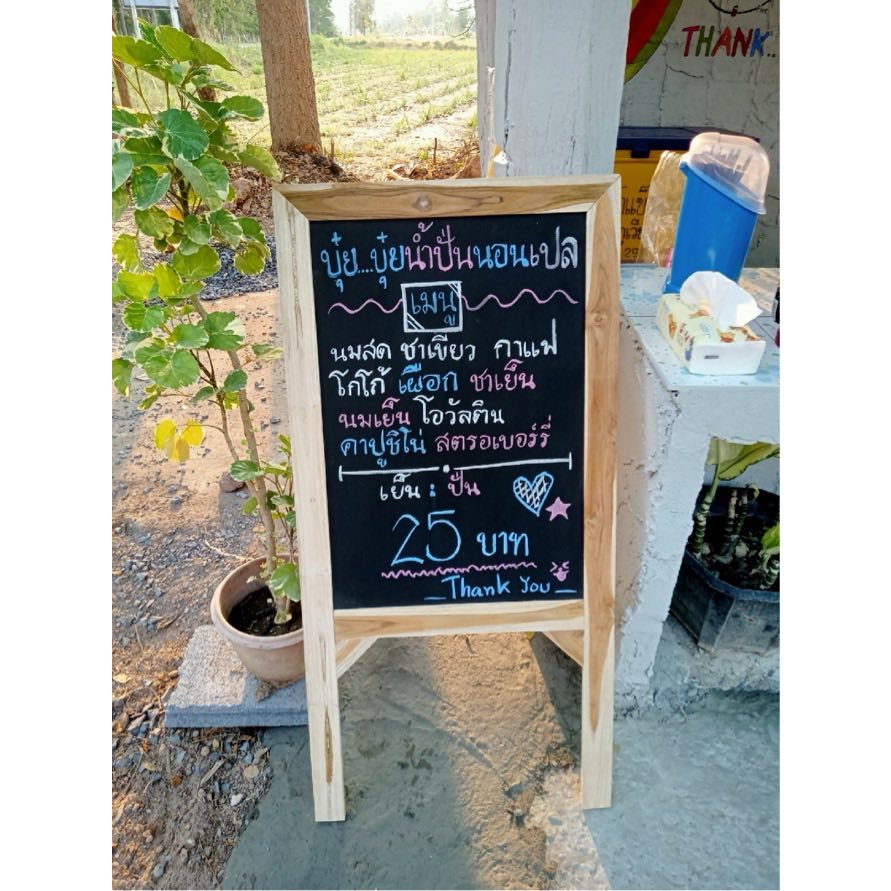 THANK..
บุ๋ย....บุ๋ยน้ำปั่นนอนเปล
เมนู
นมสด ชาเขียว กาแฟ
โกโก้ เผือก ชาเย็น
นมเย็น โอวัลติน
คาปูชิโน่ สตรอเบอร์รี่
เย็น : ปั่น
25 บาท
Thank You
29